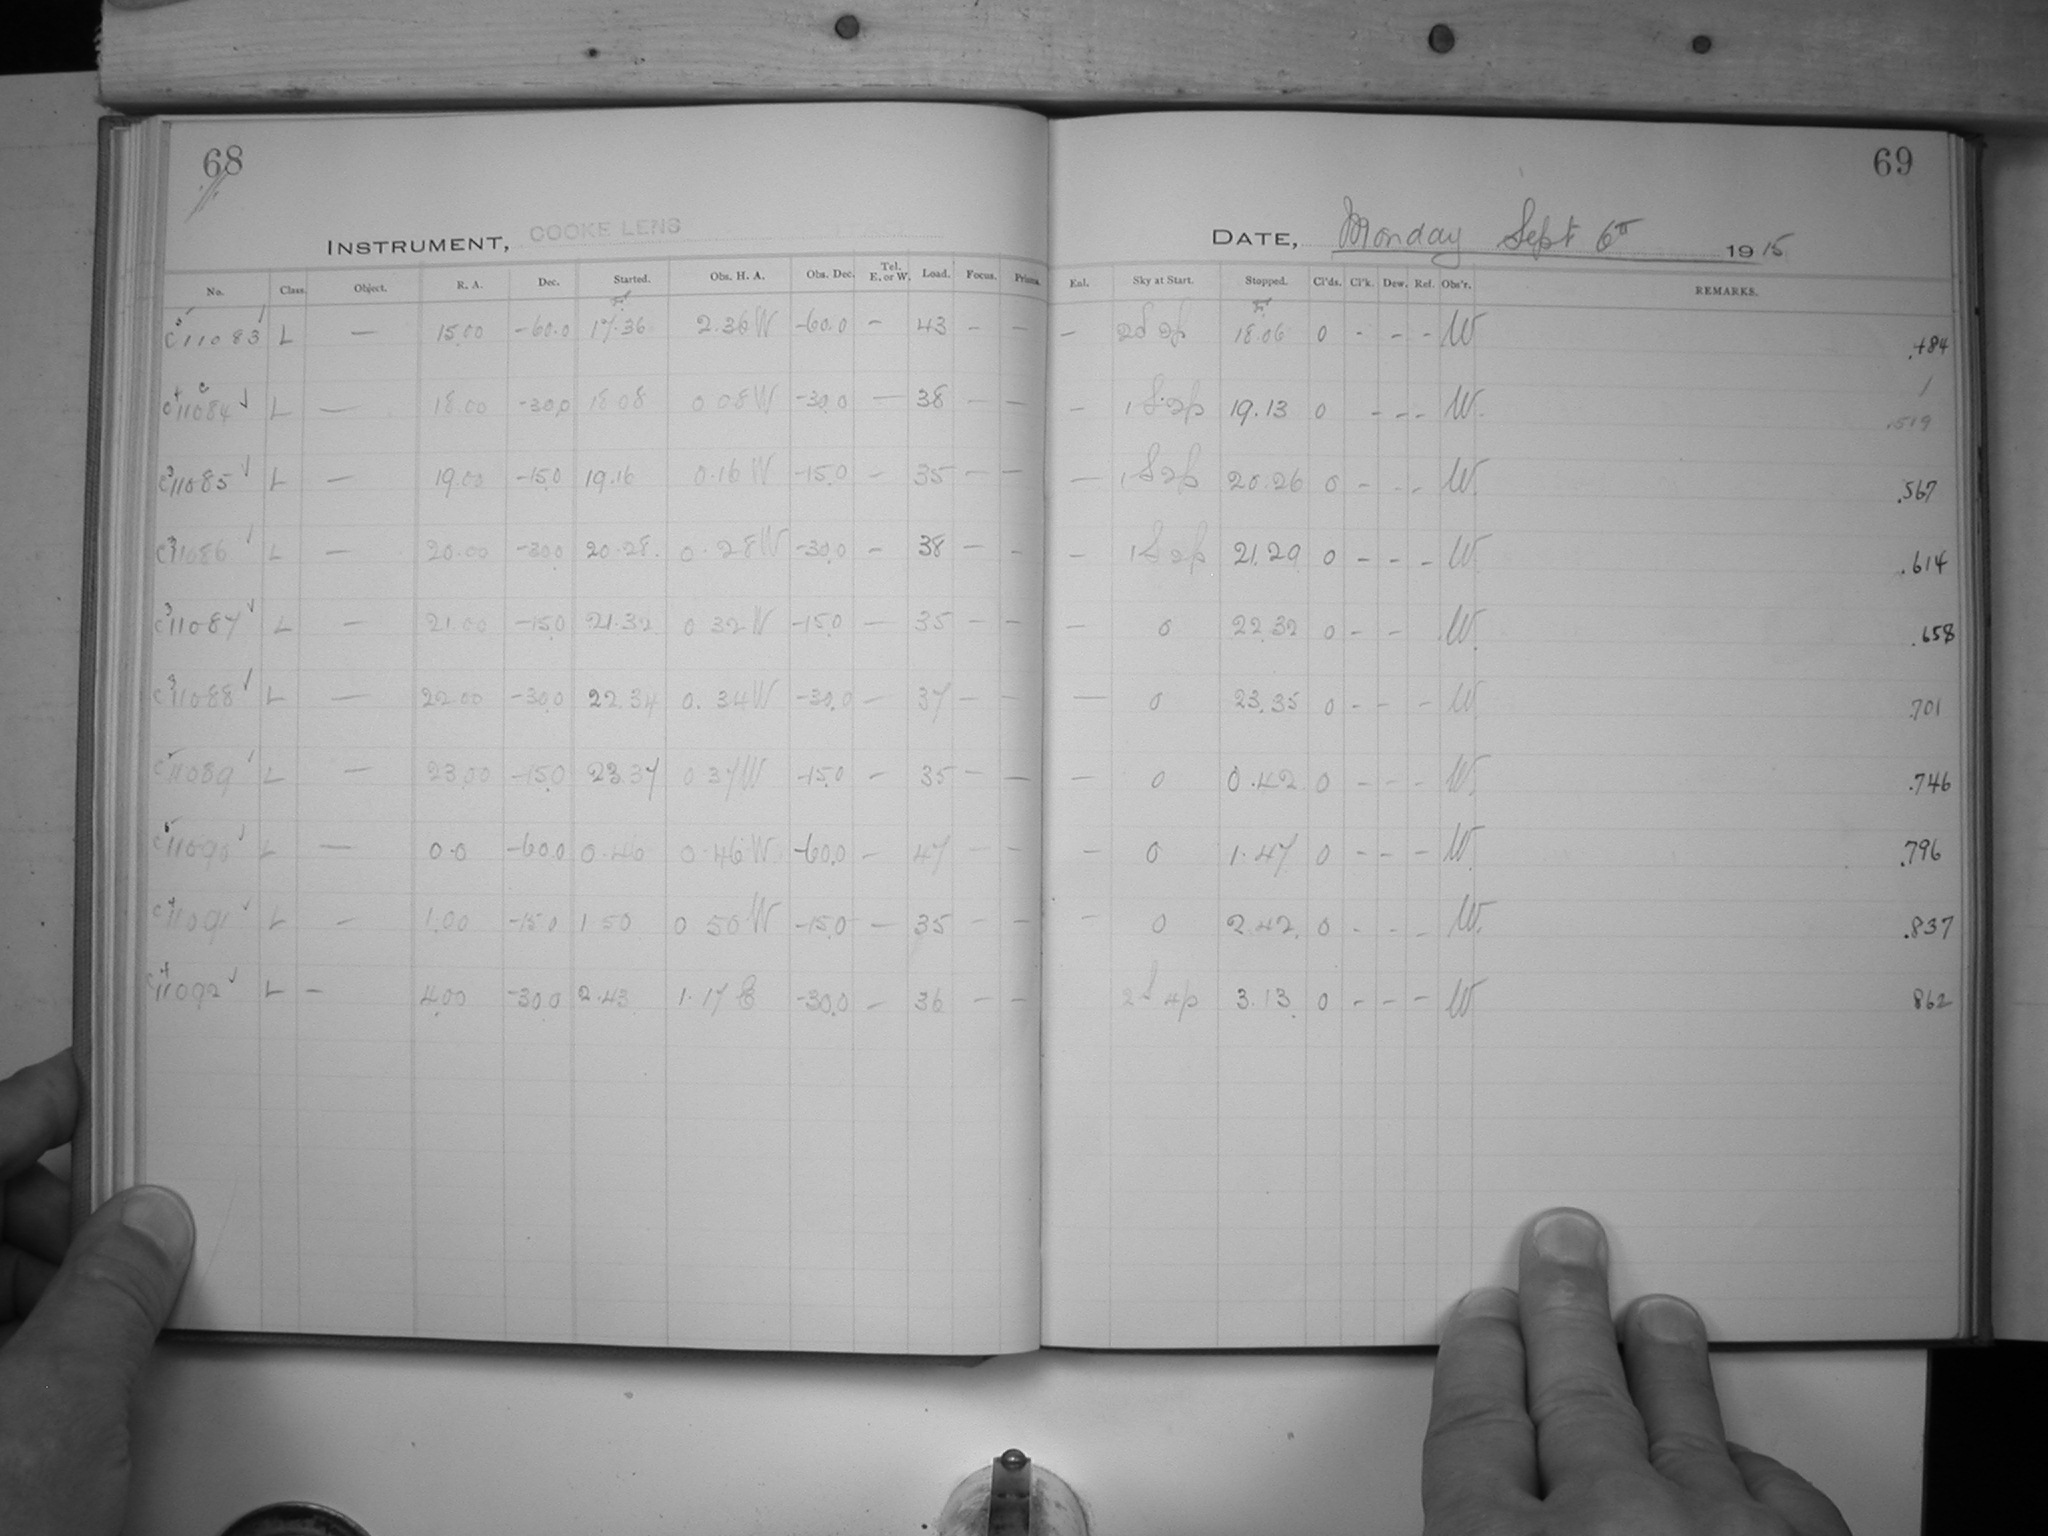 68
69
INSTRUMENT, COOKE LENS
DATE, Monday Sept 6th 1915
No. Class. Object. R. A. Dec. Started. Obs. H. A. Obs. Dec. Tel. E. or W. Load. Focus. Prisms. Enl. Sky at Start. Stopped. Cl'ds. Cl'k. Dew. Ref. Obs'r. REMARKS.
C 11083 L — 15.00 -60.0 17.36 2.36 W -60.0 — 43 — — — 18.06 0 - - - W .484
C 11084 L — 18.00 -30.0 18 08 0 08 W -30.0 — 38 — — — 1 S 2p 19.13 0 - - - W. .519
C 11085 L — 19.00 -15.0 19.16 0.16 W -15.0 — 35 — — — 1 S 2p 20.26 0 - - - W. .567
C 11086 L — 20.00 -30.0 20.28. 0.28 W -30.0 — 38 — — — 1 S 2p 21.29 0 - - - W. .614
C 11087 L — 21.00 -15.0 21.32 0 32 W -15.0 — 35 — — — 0 22.32 0 - - W. .658
C 11088 L — 22.00 -30.0 22.34 0.34 W -30.0 — 37 — — — 0 23.35 0 - - - W .701
C 11089 L — 23.00 -15.0 23.37 0 37 W -15.0 — 35 — — — 0 0.42 0 - - - W. .746
C 11090 L — 0.0 -60.0 0.46 0.46 W -60.0 — 47 — — — 0 1.47 0 - - - W. .796
C 11091 L — 1.00 -15.0 1 50 0 50 W -15.0 — 35 — — — 0 2.42. 0 - - - W. .837
C 11092 L — 4.00 -30.0 2.43 1.17 E -30.0 — 36 — — 2 S 4p 3.13 0 - - - W 862